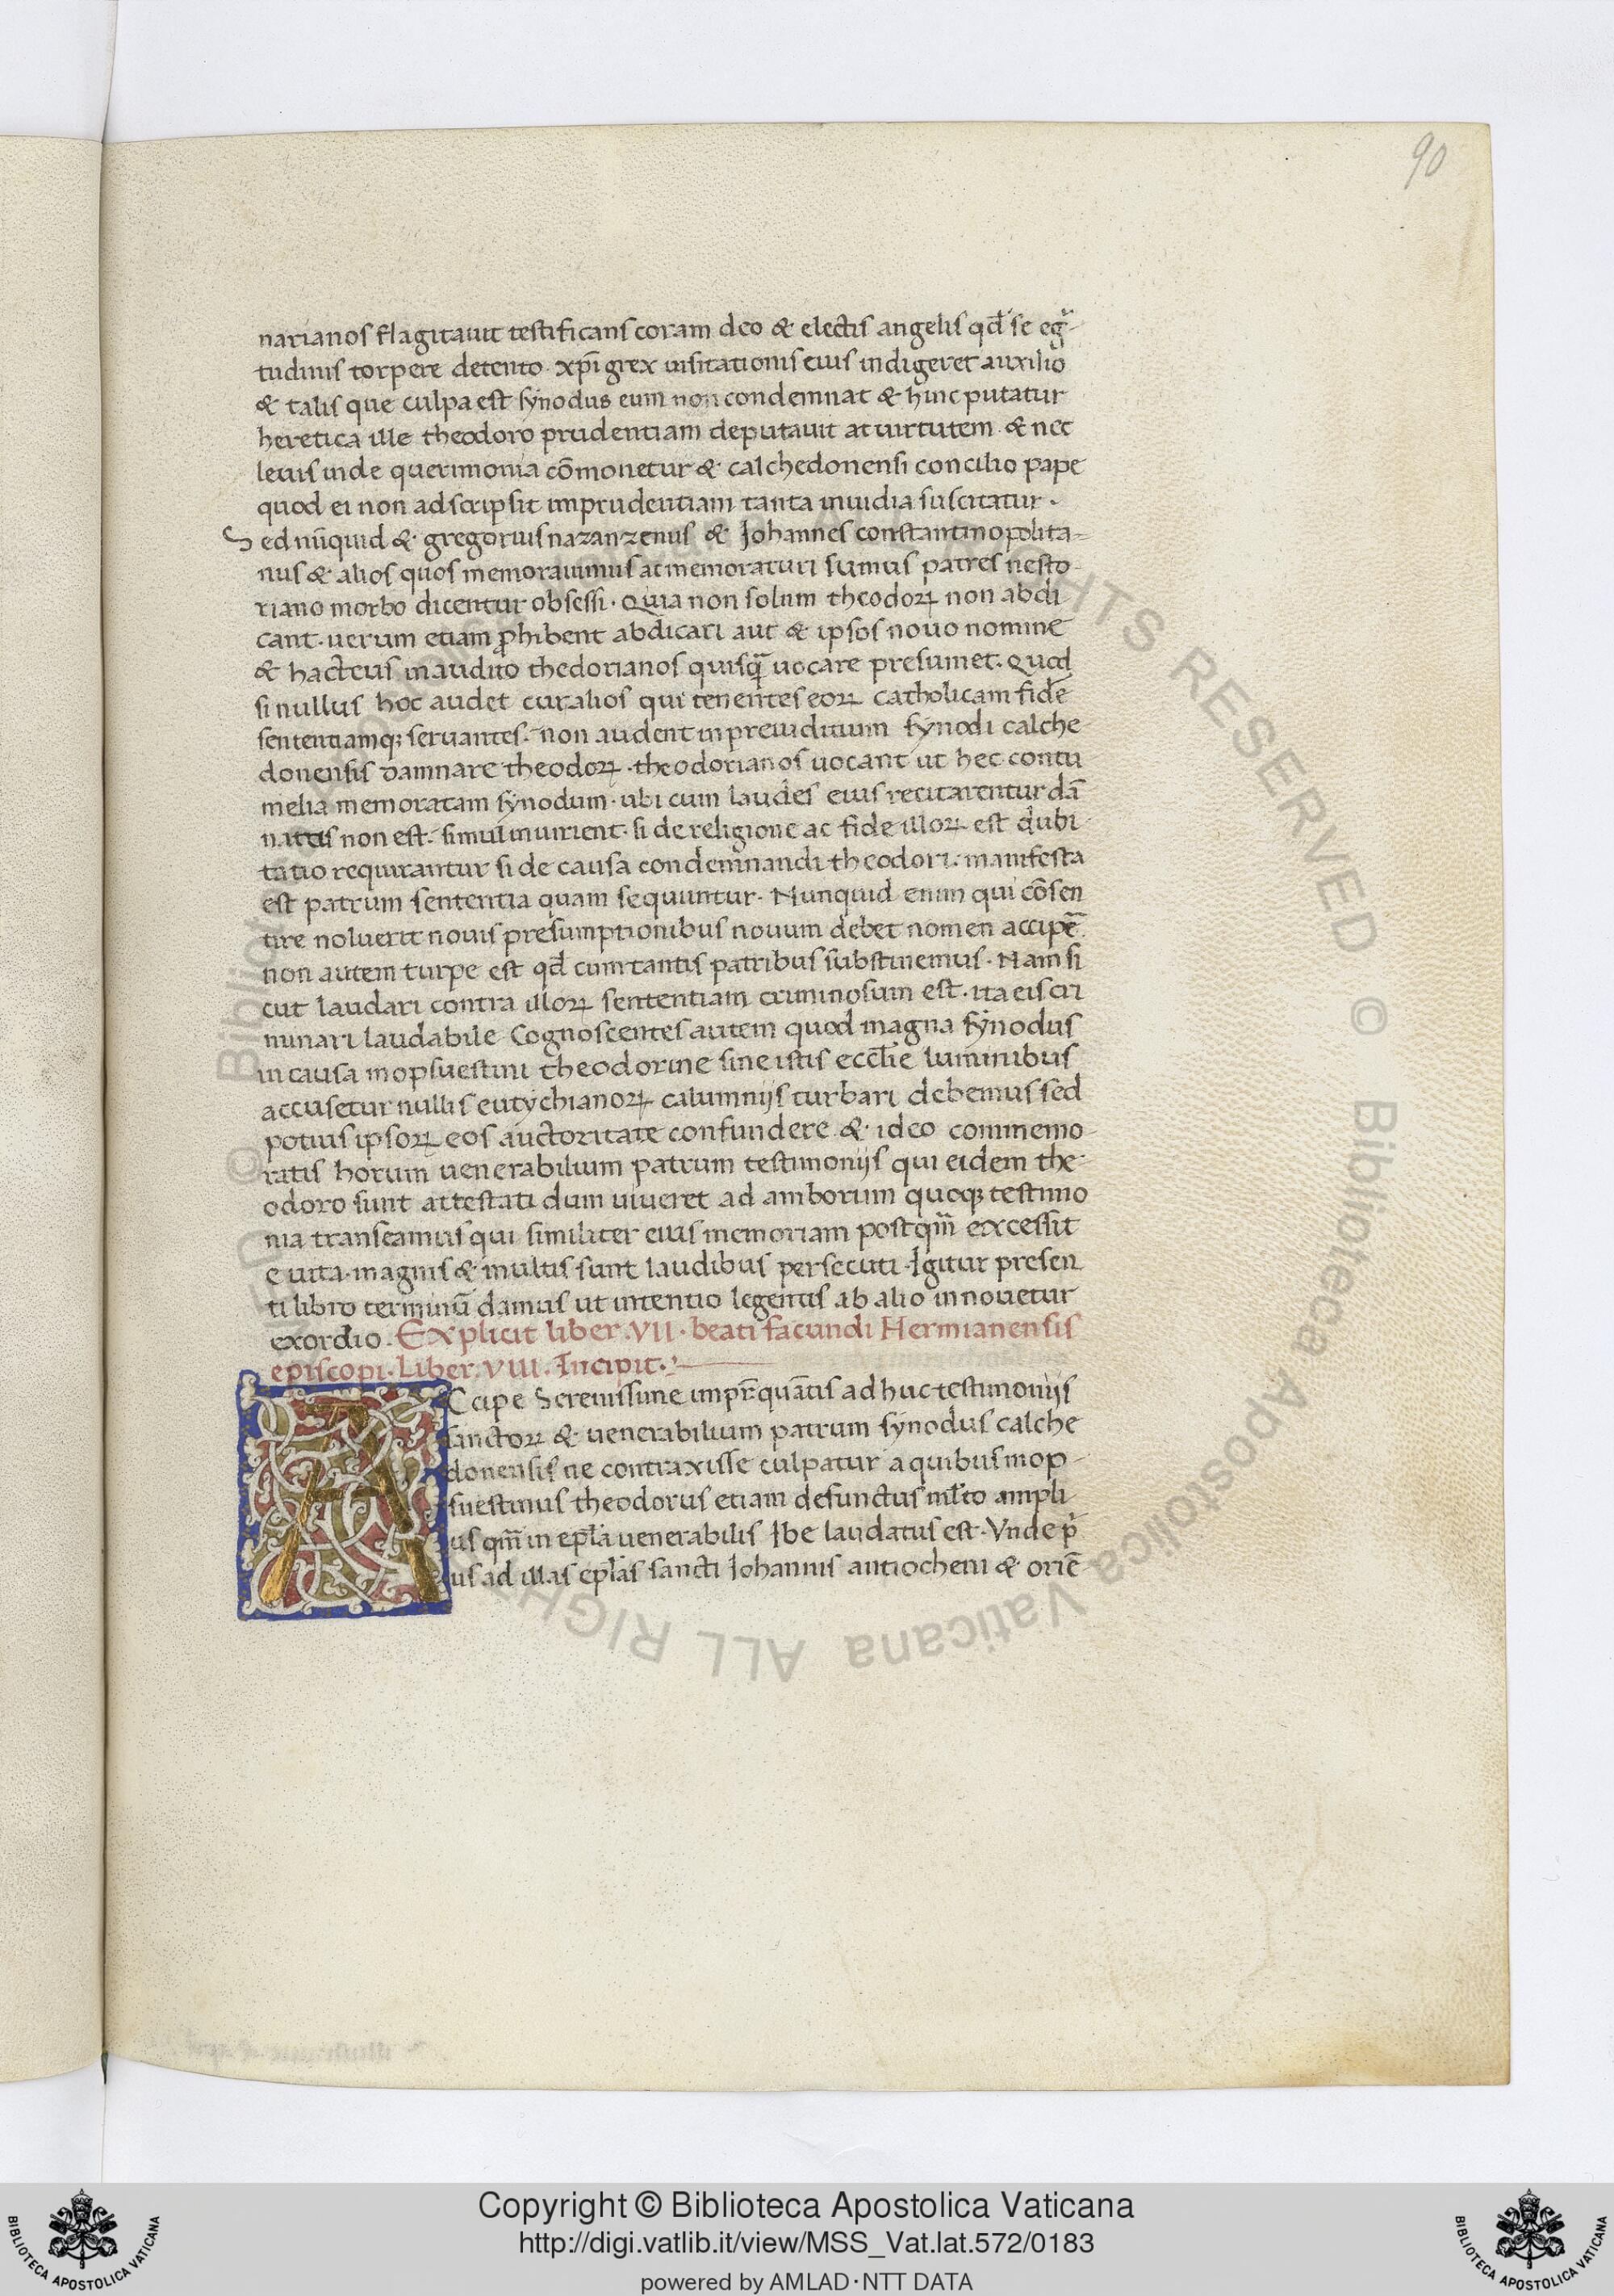 90
narianos flagitauit testificans coram deo & electis angelis qđ se egᷓ-
tudinis torpere detento. xp̄i grex uisitationis eius indigeret auxilio
& talis que culpa est synodus eum non condemnat & hinc putatur
heretica ille theodoro prudentiam deputauit at uirtutem. & nec
leuis inde querimonia cōmonetur & calchedonensi concilio pape
quod ei non adscripsit imprudentiam tanta inuidia suscitatur.
Sed nūquid & gregorius nazanzenus & Johannes constantinopolita-
nus & alios quos memorauimus at memoraturi sumus patres nesto-
riano morbo dicentur obsessi. Quia non solum theodoꝝ non abdi
cant. uerum etiam ꝓhibent abdicari aut & ipsos nouo nomine
& hacteus inaudito thedorianos quisqᷓ uocare presumet. Quod
si nullus hoc audet cur alios qui tenentes eoꝝ catholicam fidē
sententiamqꝫ seruantes. non audent in preiuditium synodi calche
donensis damnare theodoꝝ. theodorianos uocant ut hec contu
melia memoratam synodum. ubi cum laudes eius recitarentur dā
natus non est. simul inuirient. si de religione ac fide illoꝝ est dubi-
tatio requirantur si de causa condemnandi theodori. manifesta
est patrum sententia quam sequuntur. Nunquid enim qui cōsen
tire noluerit nouis presumptionibus nouum debet nomen accipē.
non autem turpe est qđ cum tantis patribus substinemus. Nam si
cut laudari contra illoꝝ sententiam criminosum est. ita eis cri
minari laudabile. Cognoscentes autem quod magna synodus
in causa mopsuestini theodorine sine istis eccl̄ie luminibus
accusetur nullis eutychianoꝝ calumnijs turbari debemus sed
potius ipsoꝝ eos auctoritate confundere. & ideo commemo-
ratis horum uenerabilium patrum testimonijs qui eidem the-
odoro sunt attestati dum uiueret ad amborum quoqꝫ testimo
nia transeamus qui similiter eius memoriam postqm̄ excessit
e uita. magnis & multis sunt laudibus persecuti. Igitur presen
ti libro terminū damus ut intentio legentis ab alio innouetur
exordio. Explicit liber .VII. beati facundi Hermianensis
episcopi. Liber. VIII. Incipit.
ACcipe Serenissime impr̄ quātis ad huc testimonijs
sanctoꝝ & uenerabilium patrum synodus calche
donensis ne contraxisse culpatur a quibus mop-
suestinus theodorus etiam defunctus ml̄to ampli-
us qm̄ in epl̄a uenerabilis Ibe laudatus est. Vnde p̄
us ad illas epl̄as sancti Johannis antiocheni & oriē-
Copyright © Biblioteca Apostolica Vaticana
http://digi.vatlib.it/view/MSS_Vat.lat.572/0183
powered by AMLAD·NTT DATA
BIBLIOTECA APOSTOLICA VATICANA
BIBLIOTECA APOSTOLICA VATICANA